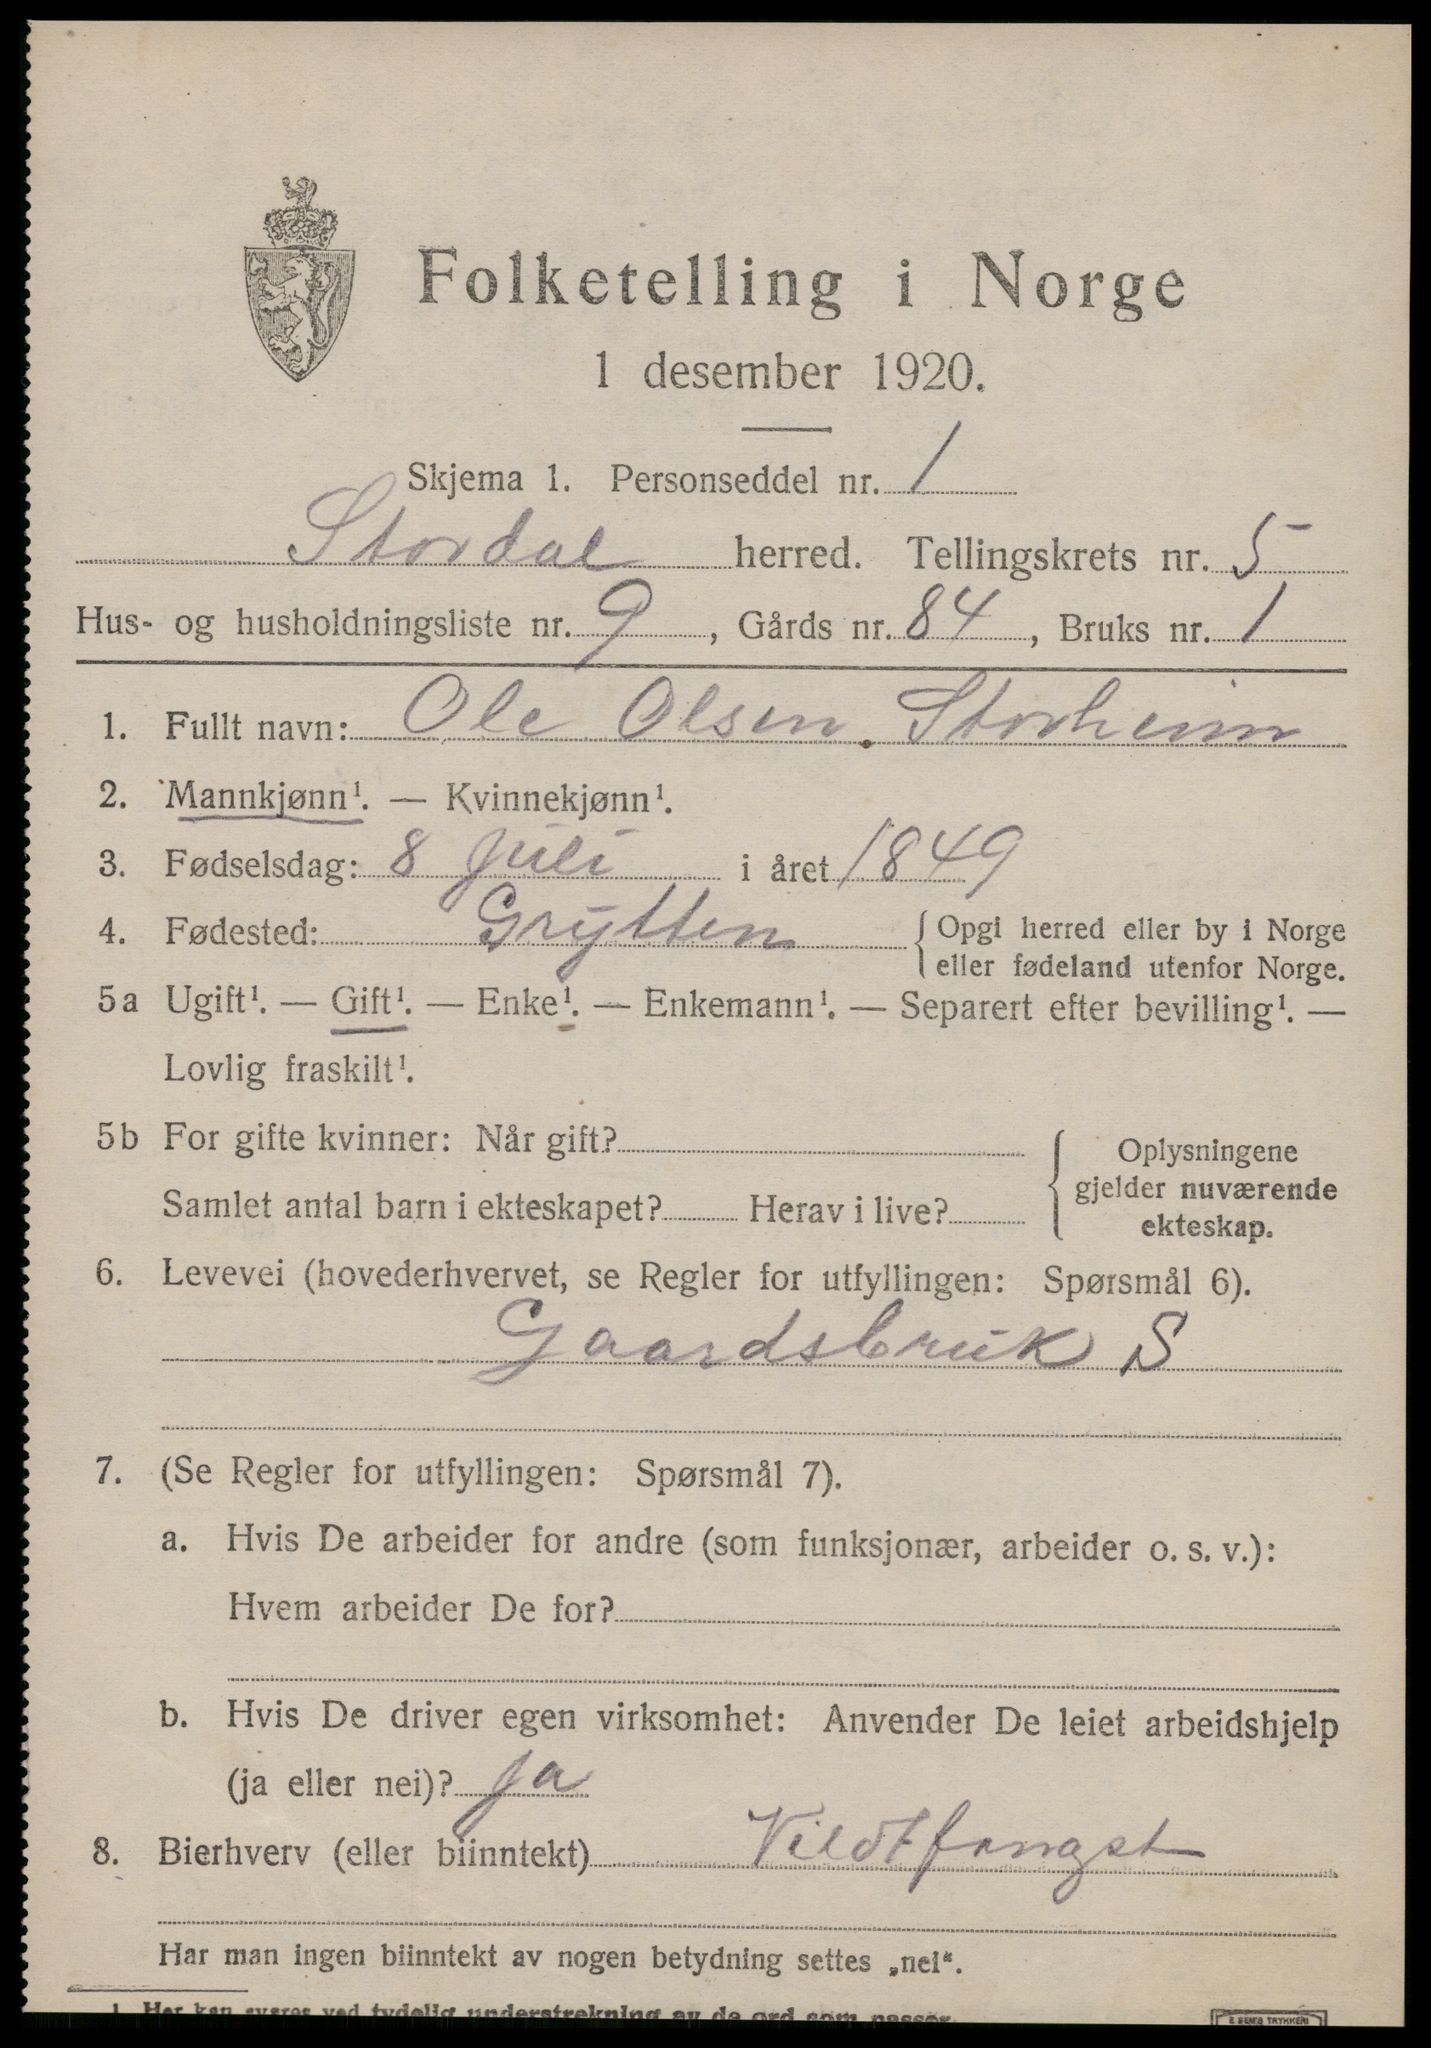 Folketelling i Norge
1 desember 1920.
Skjema 1. Personseddel nr. 1
Stordal herred. Tellingskrets nr. 5
Hus- og husholdningsliste nr. 9, Gårds nr. 84, Bruks nr. 1
1. Fullt navn: Ole Olsen Storheim
2. Mannkjønn¹. — Kvinnekjønn¹.
3. Fødselsdag: 8 juli i året 1849
4. Fødested: Grytten { Opgi herred eller by i Norge
eller fødeland utenfor Norge.
5a Ugift¹. — Gift¹. — Enke¹. — Enkemann¹. — Separert efter bevilling¹. —
Lovlig fraskilt¹.
5b For gifte kvinner: Når gift?
Samlet antal barn i ekteskapet? Herav i live?
{ Oplysningene
gjelder nuværende
ekteskap.
6. Levevei (hovederhvervet, se Regler for utfyllingen: Spørsmål 6).
Gaardsbruk S
7. (Se Regler for utfyllingen: Spørsmål 7).
a. Hvis De arbeider for andre (som funksjonær, arbeider o. s. v.):
Hvem arbeider De for?
b. Hvis De driver egen virksomhet: Anvender De leiet arbeidshjelp
(ja eller nei)? ja
8. Bierhverv (eller biinntekt) Vildtfangst
Har man ingen biinntekt av nogen betydning settes „nei“.
1. Her kan svares ved tydelig understrekning av de ord som passer.